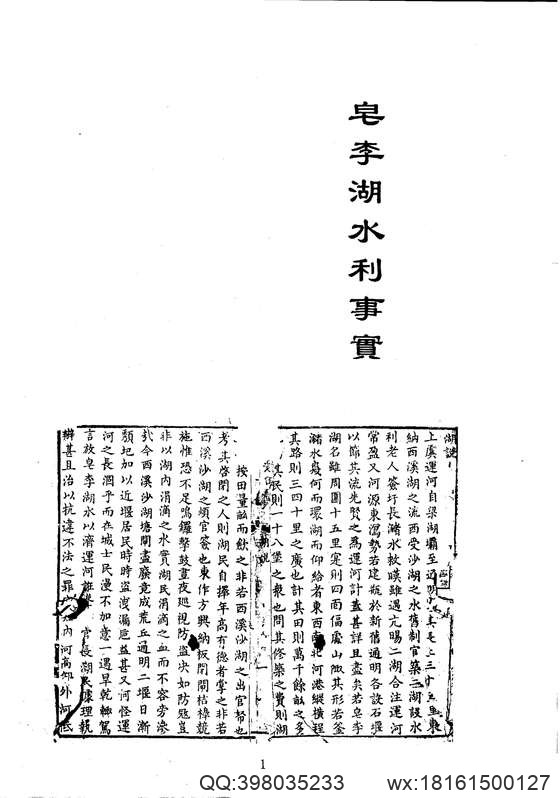 皂李湖水利事實
湖説
上虞運河自梁湖壩至通明
納西溪湖之流西受沙湖之水舊制官築二湖設水
利老人簽圩長瀦水救暵雖遇亢暘二湖合注運河
常盈又河源東瀉勢若建瓴於新舊通明各設石堰
以節其流先賢之為運河計蓋甚詳且盡矣若皂李
湖名雖周圍十五里寔則四面偪處山陬其形若釜
瀦水幾何而環湖而仰給者東西南北河港縱橫程
其路則三四十里之廣也計其田則萬千餘畝之多
其民則一十八堡之衆也問其修築之費則湖
按田量畝而飲之非若西溪沙湖之出官帑也
考其啓閉之人則湖民自擇年高有德者掌之非若
西溪沙湖之煩官簽也東作方興納板閉閘桔槔競
施惟恐不足鳴鑼擊鼓晝夜巡視防盜决如防寇豈
非以湖内涓滴之水實湖民涓滴之血而不容旁滲
㢤今西溪沙湖塘閘盡廢竟成荒丘通明二堰日漸
頽圮加以近堰居民時時盜洩漏巵益甚又何怪運
河之長涸乎而在城士民漫不加意一遇旱乾輙駕
言放皂李湖水以濟運河
官長湖民據理執
辯甚且治以抗違不法之罪
内河高仰外河低
1
QQ:398035233
wx:18161500127